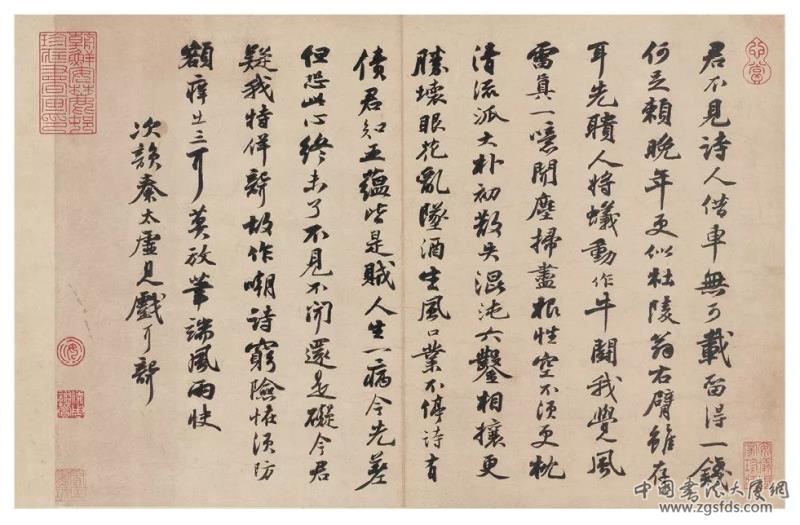 君不見詩人借車無可載留得一錢
何足賴晚年更似杜陵翁右臂雖存
耳先聵人將蟻動作牛鬭我覺風
雷真一噫聞塵掃盡根性空不須更枕
清流派大朴初散失混沌六鑿相攘更
勝壞眼花亂墜酒生風口業不停詩有
債君知五蘊皆是賊人生一病今先差
但恐此心終未了不見不聞還是礙今君
疑我特佯聾故作嘲詩窮險怪須防
額痒出三耳莫放筆端風雨快
次韻秦太虛見戲耳聾
中国书法大厦網
www.zgsfds.com